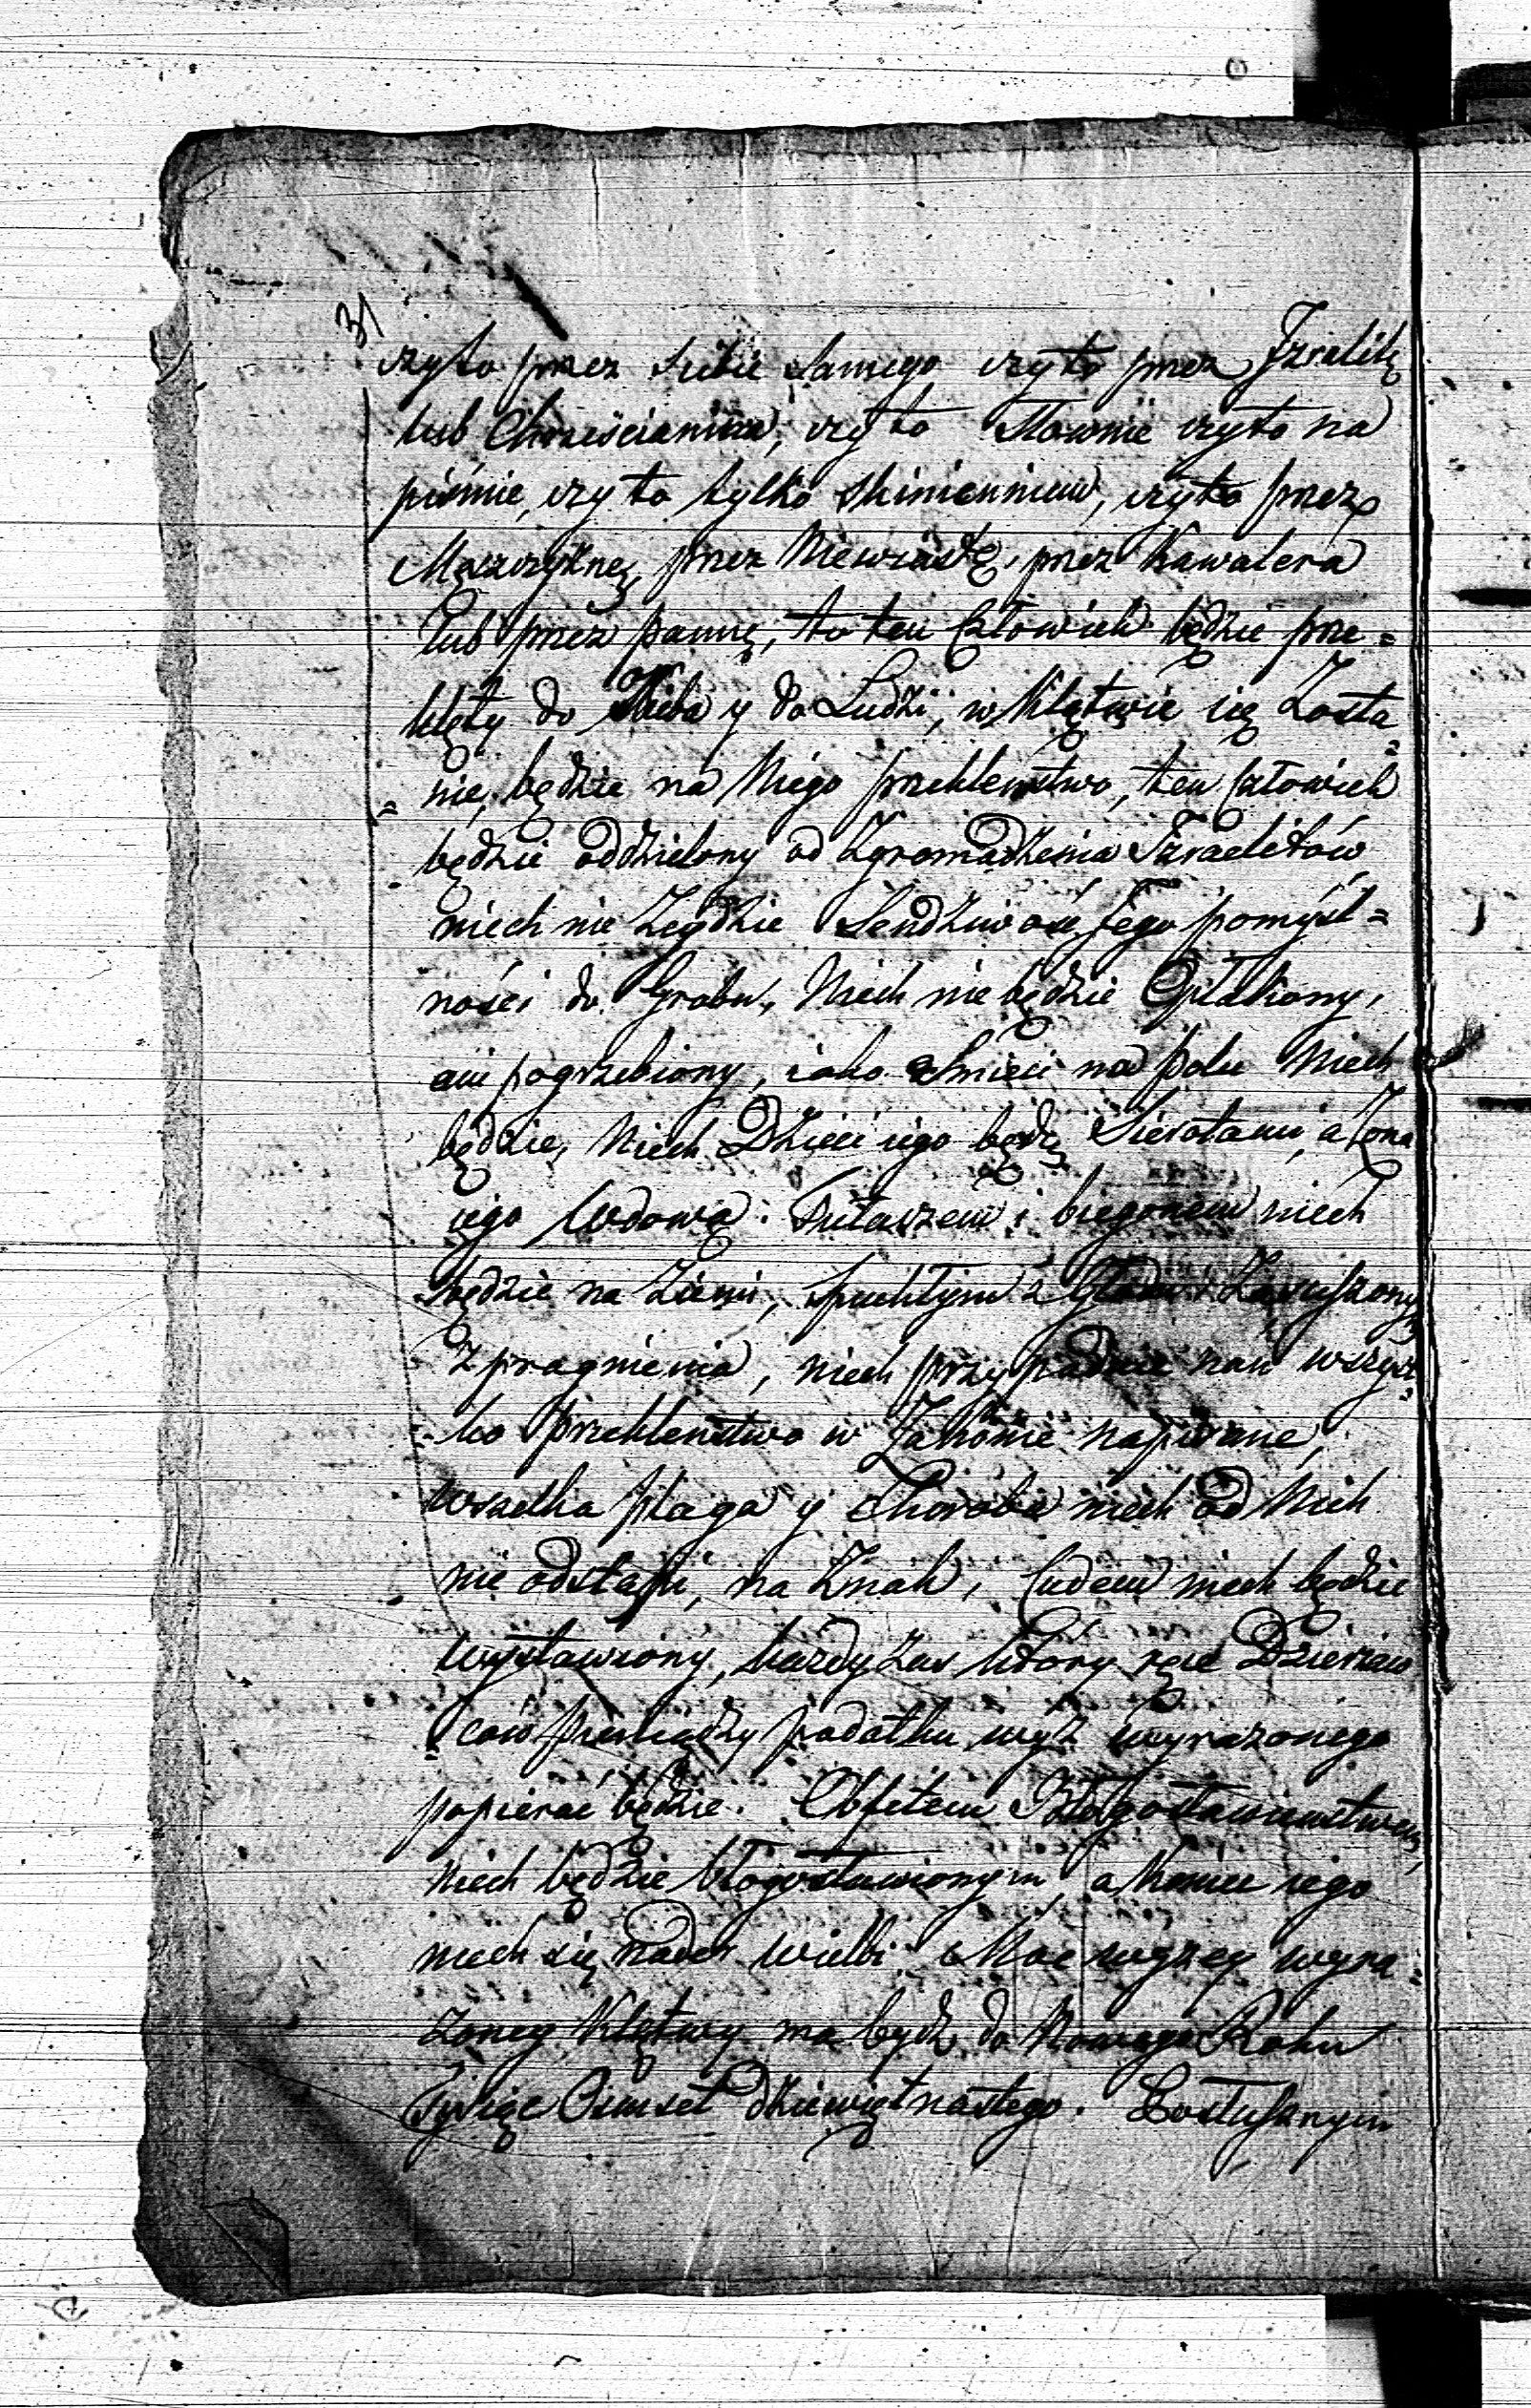 31
czyto przez siebie Samego czyto przez Izralitę
lub Chrześcianina, czyto Słownie czyto na
piśmie, czyto tylko skinieniem, czyto przez
Męszczyznę, przez Niewiastę, przez Kawalera
lub przez pannę, to ten Człowiek będzie prze=
klęty do y do Ludzi, w Klętwie się Zosta=
=nie, będzie na Niego przeklenstwo, ten Człowiek
będzie oddzielony od Zgromadzenia Izraelitów
niech nie Zeydzie Sendziwość Jego pomyśl=
ności do Grobu, Niech nie będzie Opłakiony,
ani pogrzebiony, iako Smieci na polu Niech
będzie, Niech Dzieci iego będą Sierotami, a Żona
iego Wdową. Tułaczem i biegonem niech
będzie na Ziemi, spuchłym z Głodu i Zasuszony
Z pragnienia, niech przypadnie nań wszyst=
=ko przeklenstwo w Zakonie napisane,
wszelka plaga y Choroba niech od Nich
nie odstąpi, na Znak i Cudem niech będzie
wystawiony, każdy zas który rzecz Dzierżaw
=ców pieniędzy podatku wyż wyrażonego
popierać będzie. Obfitem Błogosławienstwem,
niech będzie błogosławionym a Koniec iego
niech się nader wielbi. Moc wyżey wyra=
żoney Klętwy ma bydz do Nowego Roku
Tysiąc Osmset dziewiętnastego. Posłusznym